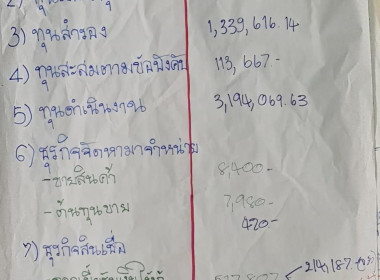 3) ทุนสำรอง 1,339,616.14
4) ทุนสะสมตามข้อบังคับ 113,667.-
5) ทุนดำเนินงาน 3,194,069.63
6) ธุรกิจจัดหามาจำหน่าย
-ขายสินค้า 8,400-
-ต้นทุนขาย 7,980-
420-
7) ธุรกิจสินเชื่อ
214,187.